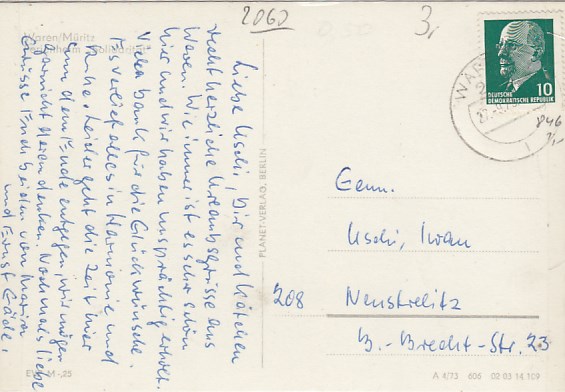 2060
3,
Waren/Müritz
"Solidarität"
Liebe Uschi, Dir und Kätchen
recht herzliche Urlaubsgrüsse aus
Waren. Wie immer ist es sehr schön
hier und wir haben uns prächtig erholt.
Vielen Dank für die Glückwünsche.
Es verlief alles in Harmonie und
Ruhe. Leider geht die Zeit hier
dem Ende entgegen, wir mögen
gar nicht daran denken. Nochmals liebe
Grüsse Euch beiden von Marion
und Ernst Gäde.
EVP M -,25
PLANET-VERLAG, BERLIN
10
DEUTSCHE
DEMOKRATISCHE REPUBLIK
WAR
846
1,-
Genn.
Uschi, Iwan
208 Neustrelitz
B.-Brecht-Str. 23
A 4/73 606 02 03 14 109